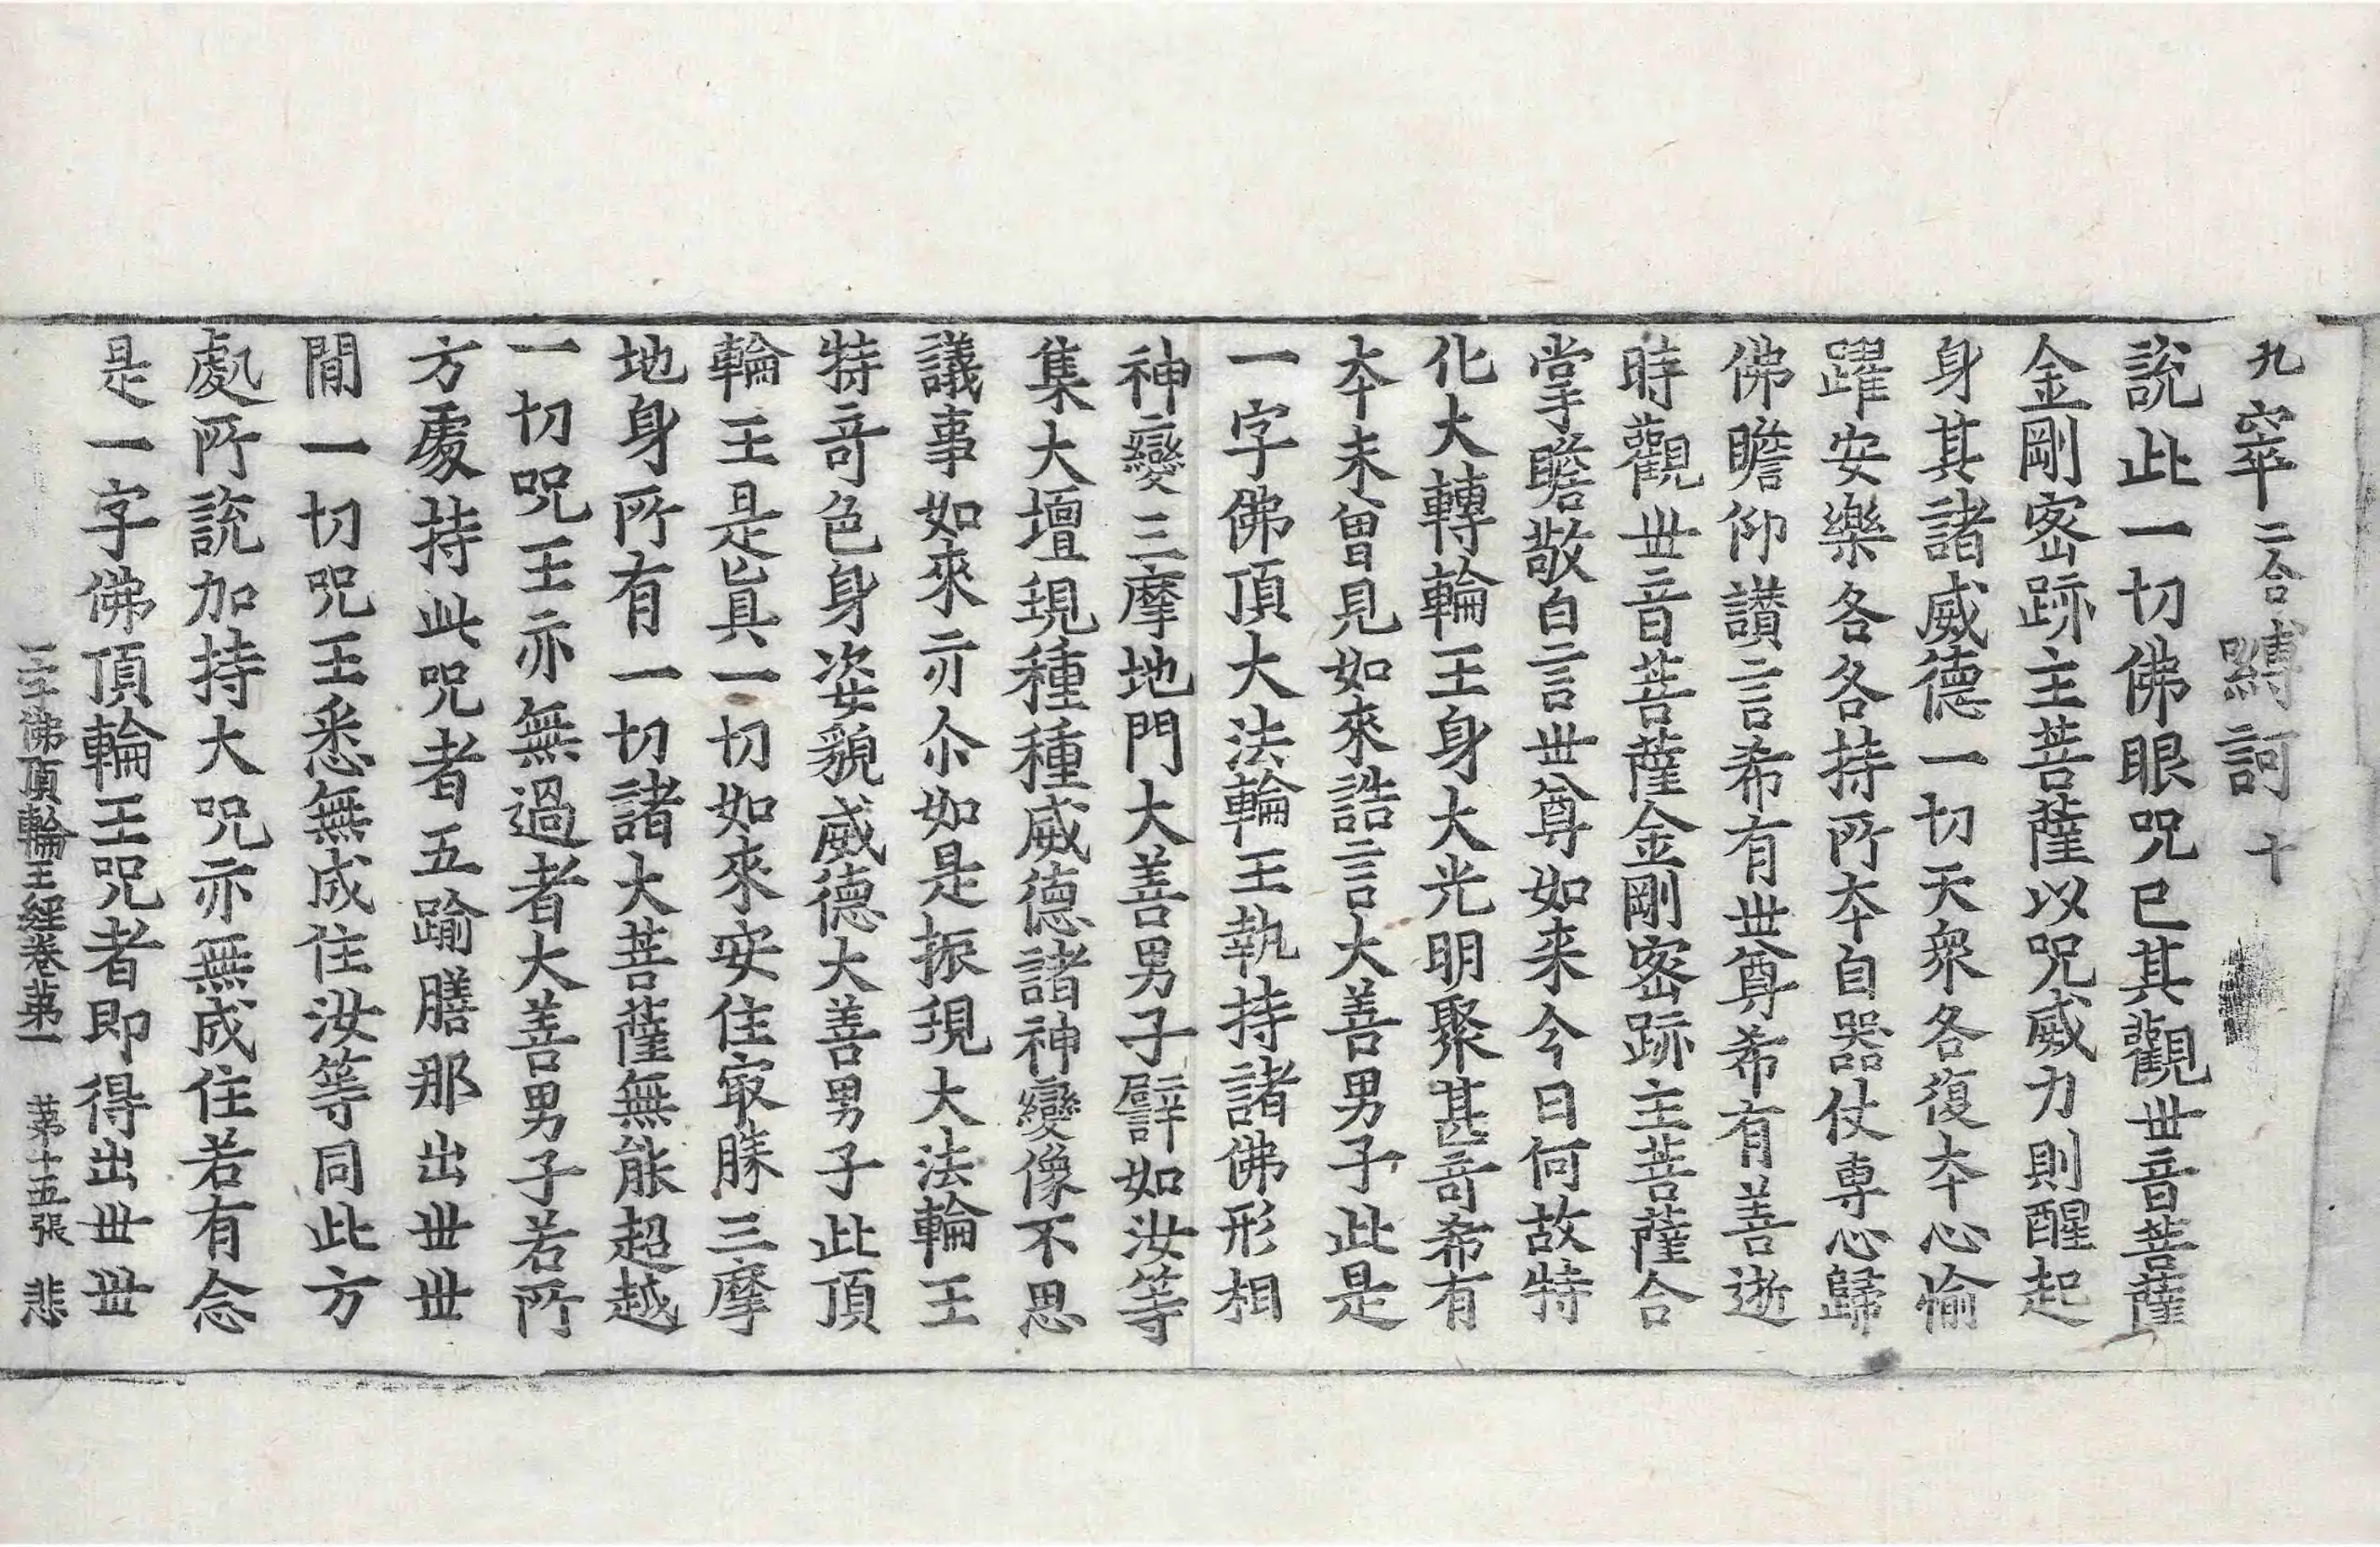 九窣二合嚩訶十
說此一切佛眼呪已其觀丗音菩薩
金剛宻跡主菩薩以呪威力則醒起
身其諸威德一切天衆各復夲心愉
躍安樂各各持所夲自器仗専心歸
佛瞻仰讃言希有丗尊希有善逝
時觀丗音菩薩金剛宻跡主菩薩合
掌瞻敬白言丗尊如来今日何故特
化大轉輪王身大光明聚甚竒希有
夲未曾見如來誥言大善男子此是
一字佛頂大法輪王執持諸佛形相
神變三摩地門大善男子譬如汝等
集大壇現種種威德諸神變像不思
議事如來亦尒如是振現大法輪王
特竒色身姿貌威德大善男子此頂
輪王是眞一切如來安住冣勝三摩
地身所有一切諸大菩薩無能超越
一切呪王亦無過者大善男子若所
方處持此呪者五踰膳那出丗丗
間一切呪王悉無成住汝等同此方
處所說加持大呪亦無成住若有念
是一字佛頂輪王呪者即得出丗丗
一字佛頂輪王經卷第一 第十五張 悲